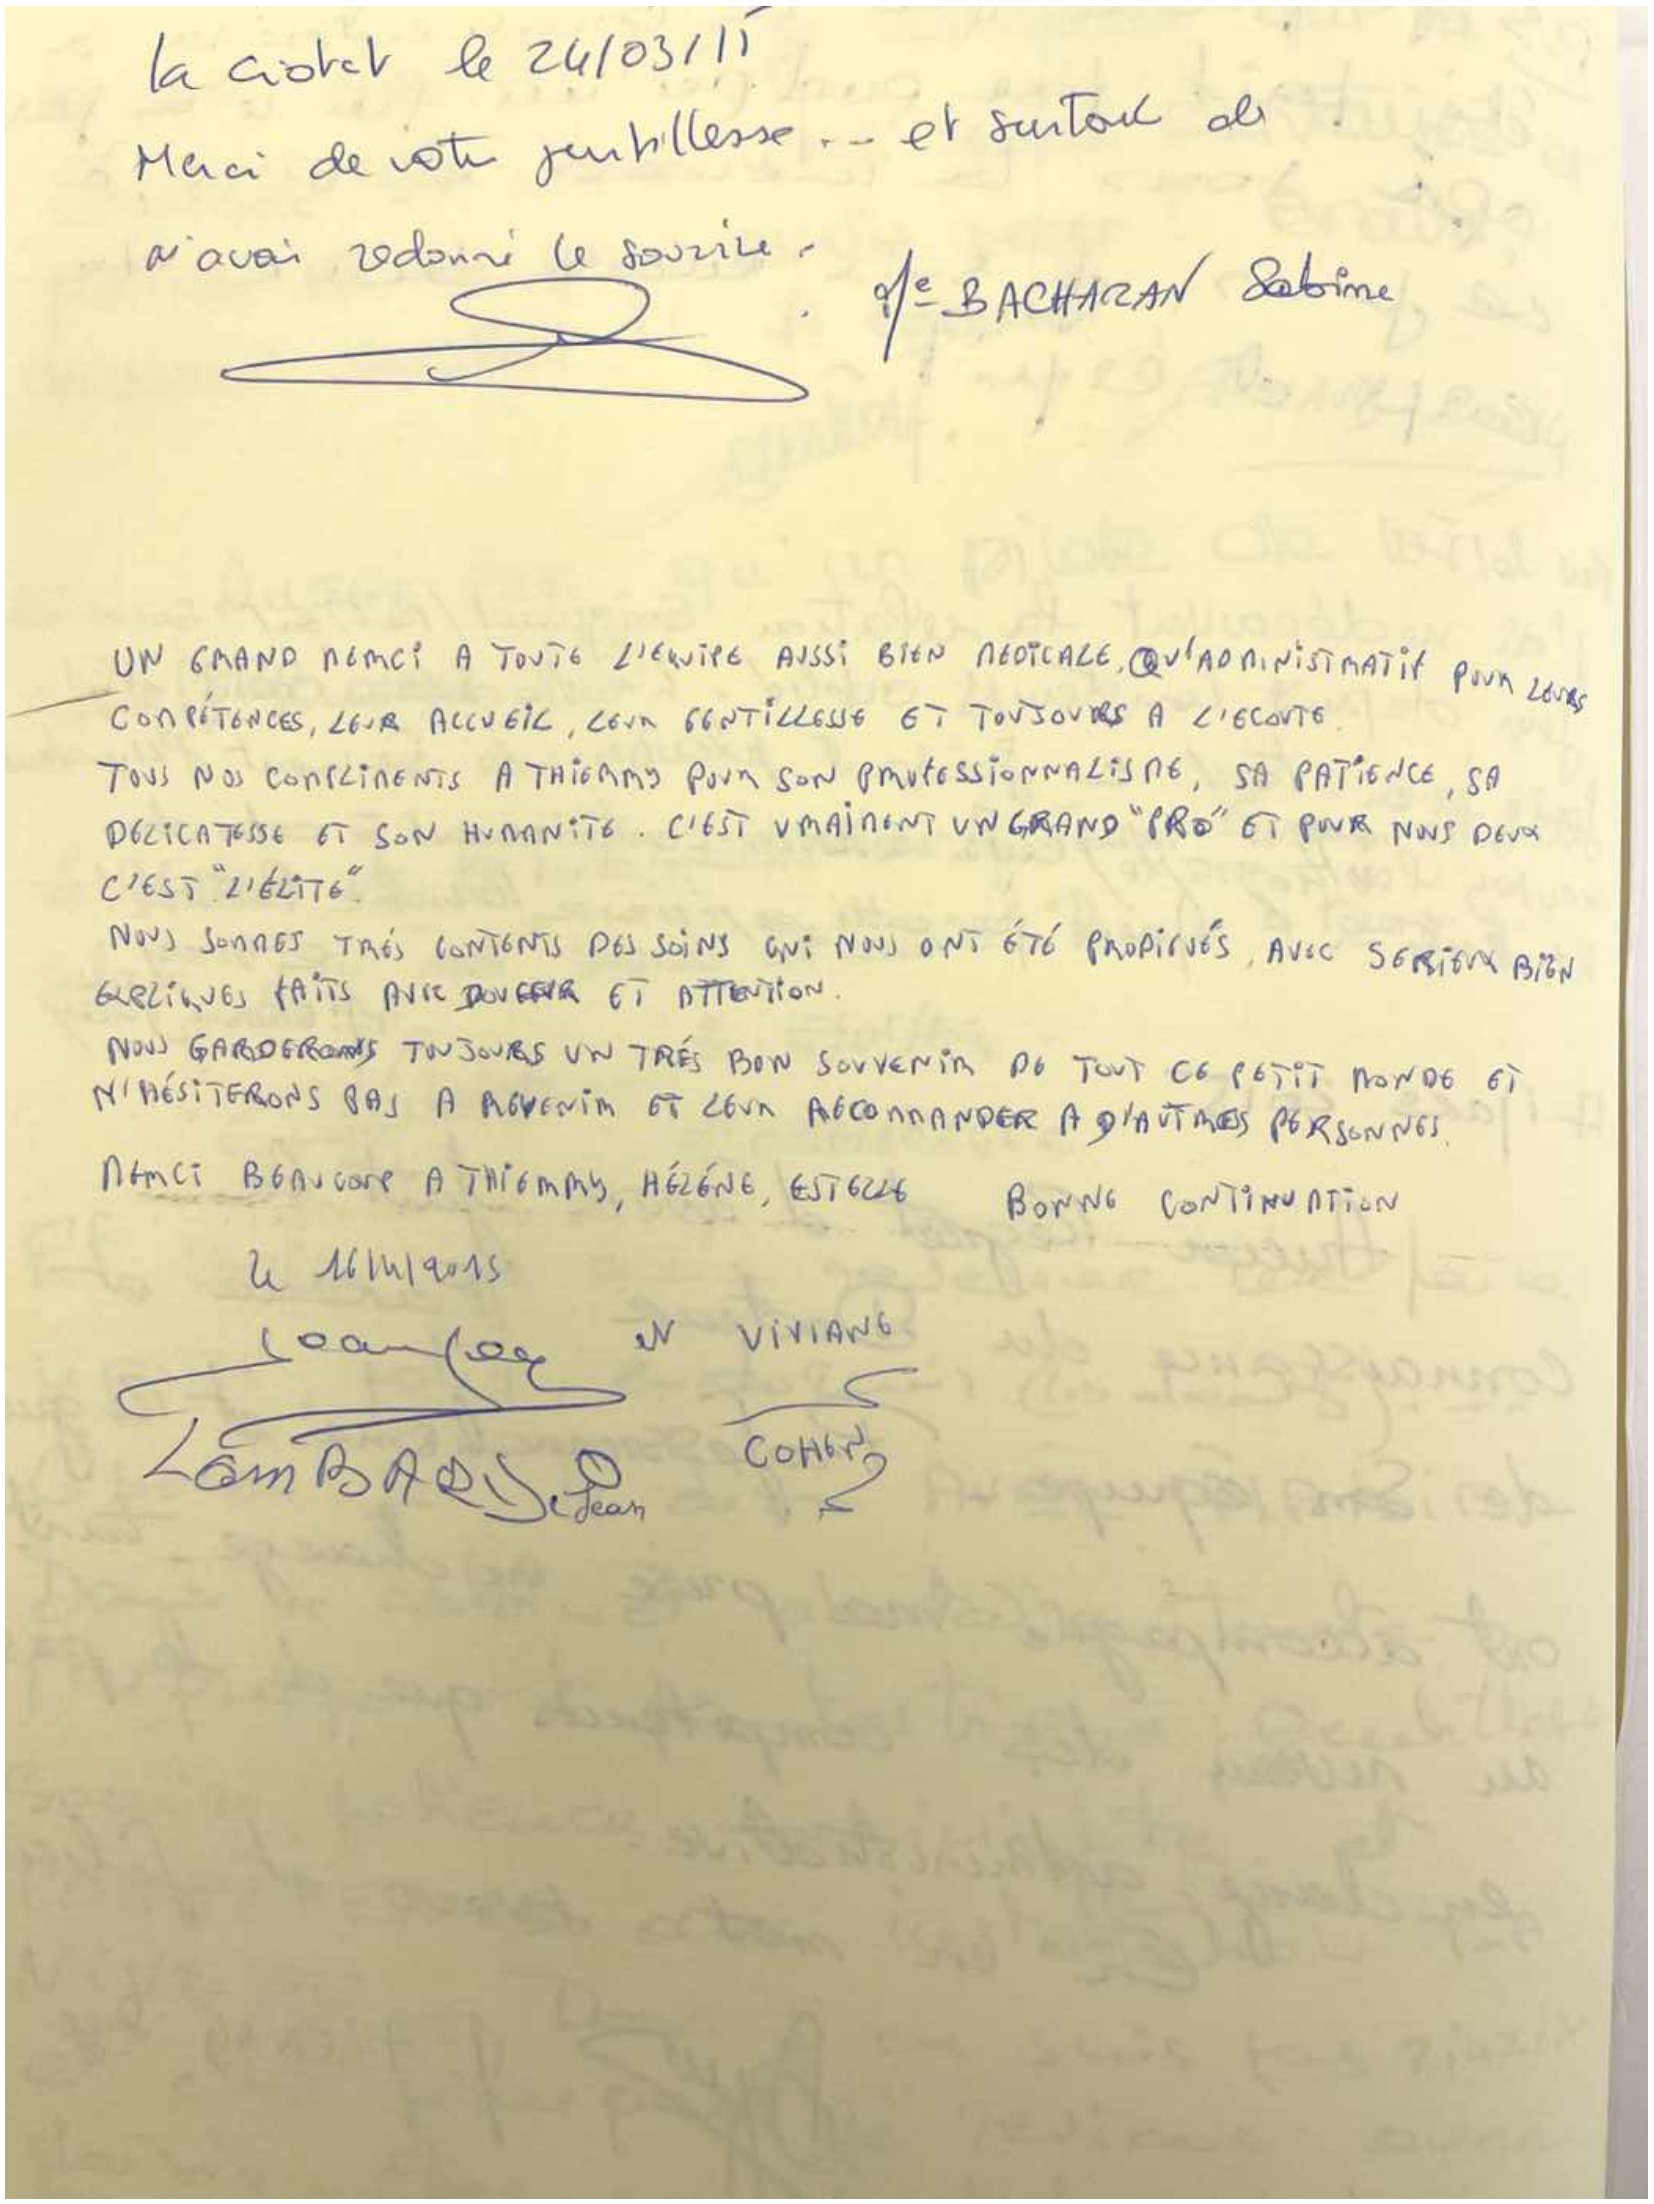 la ciotat le 24/03/15
Merci de votre gentillesse... et surtout de
m'avoir redonné le sourire.
Me BACHARAN Sabine
UN GRAND MERCI A TOUTE L'EQUIPE AUSSI BIEN MEDICALE, QU'ADMINISTRATIF POUR LEURS
COMPÉTENCES, LEUR ACCUEIL, LEUR GENTILLESSE ET TOUJOURS A L'ECOUTE.
TOUS NOS COMPLIMENTS A THIERRY POUR SON PROFESSIONNALISME, SA PATIENCE, SA
DELICATESSE ET SON HUMANITE. C'EST VRAIMENT UN GRAND "PRO" ET POUR NOUS DEUX
C'EST "L'ÉLITE".
NOUS SOMMES TRÉS CONTENTS DES SOINS QUI NOUS ONT ÉTÉ PRODIGUÉS, AVEC SERIEUX BIEN
EXPLIQUES FAITS AVEC DOUCEUR ET ATTENTION.
NOUS GARDERONS TOUJOURS UN TRÉS BON SOUVENIR DE TOUT CE PETIT MONDE ET
N'HÉSITERONS PAS A REVENIR ET LEUR RECOMMANDER A D'AUTRES PERSONNES.
MERCI BEAUCOUP A THIERRY, HÉLÉNE, ESTELLE BONNE CONTINUATION
le 16/4/2015
et VIVIANE
LOMBARDI Jean COHEN